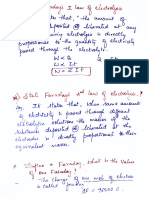 Faraday's I law of electrolysis
It state that, "the amount of
substance deposited @ liberated at any
electrolysis is directly
proportional to the quantity of electricity
passed through the electrolyte.
W ∝ Q
W ∝ It
W = Z I t
State Faraday's 2nd law of electrolysis.?
It state that, When same amount
of electricity is passed through different
electrolytic solutions the masses of the
substance deposited @ liberated at the
are directly proportional to their
Define a Faraday. What is the Value
of one Faraday?
The charge of one mole of electron
is called Faraday
1F = 96500 C.